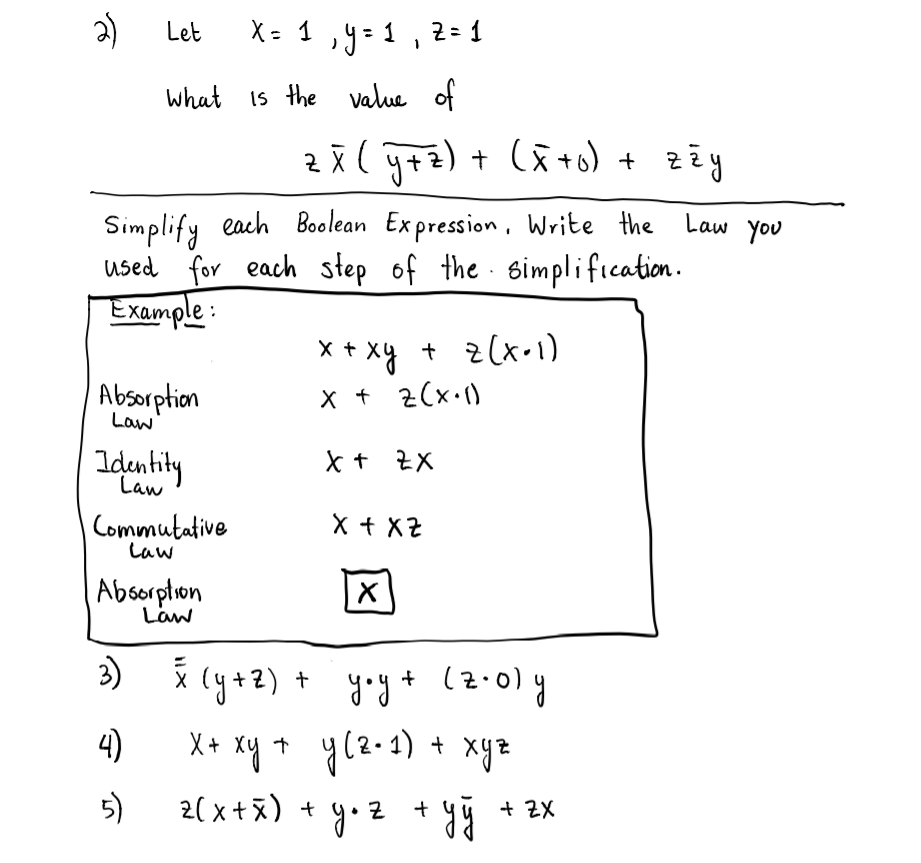 2) Let x = 1 , y = 1 , z = 1
What is the value of
z x̄ ( y̅+̅z̅ ) + ( x̄ + 0 ) + z z̄ y
Simplify each Boolean Expression. Write the Law you
used for each step of the simplification.
Example:
x + xy + z(x·1)
Absorption Law x + z(x·1)
Identity Law x + zx
Commutative Law x + xz
Absorption Law x
3) x̿ (y+z) + y·y + (z·0) y
4) x + xy + y(z·1) + xyz
5) z(x+x̄) + y·z + yȳ + zx